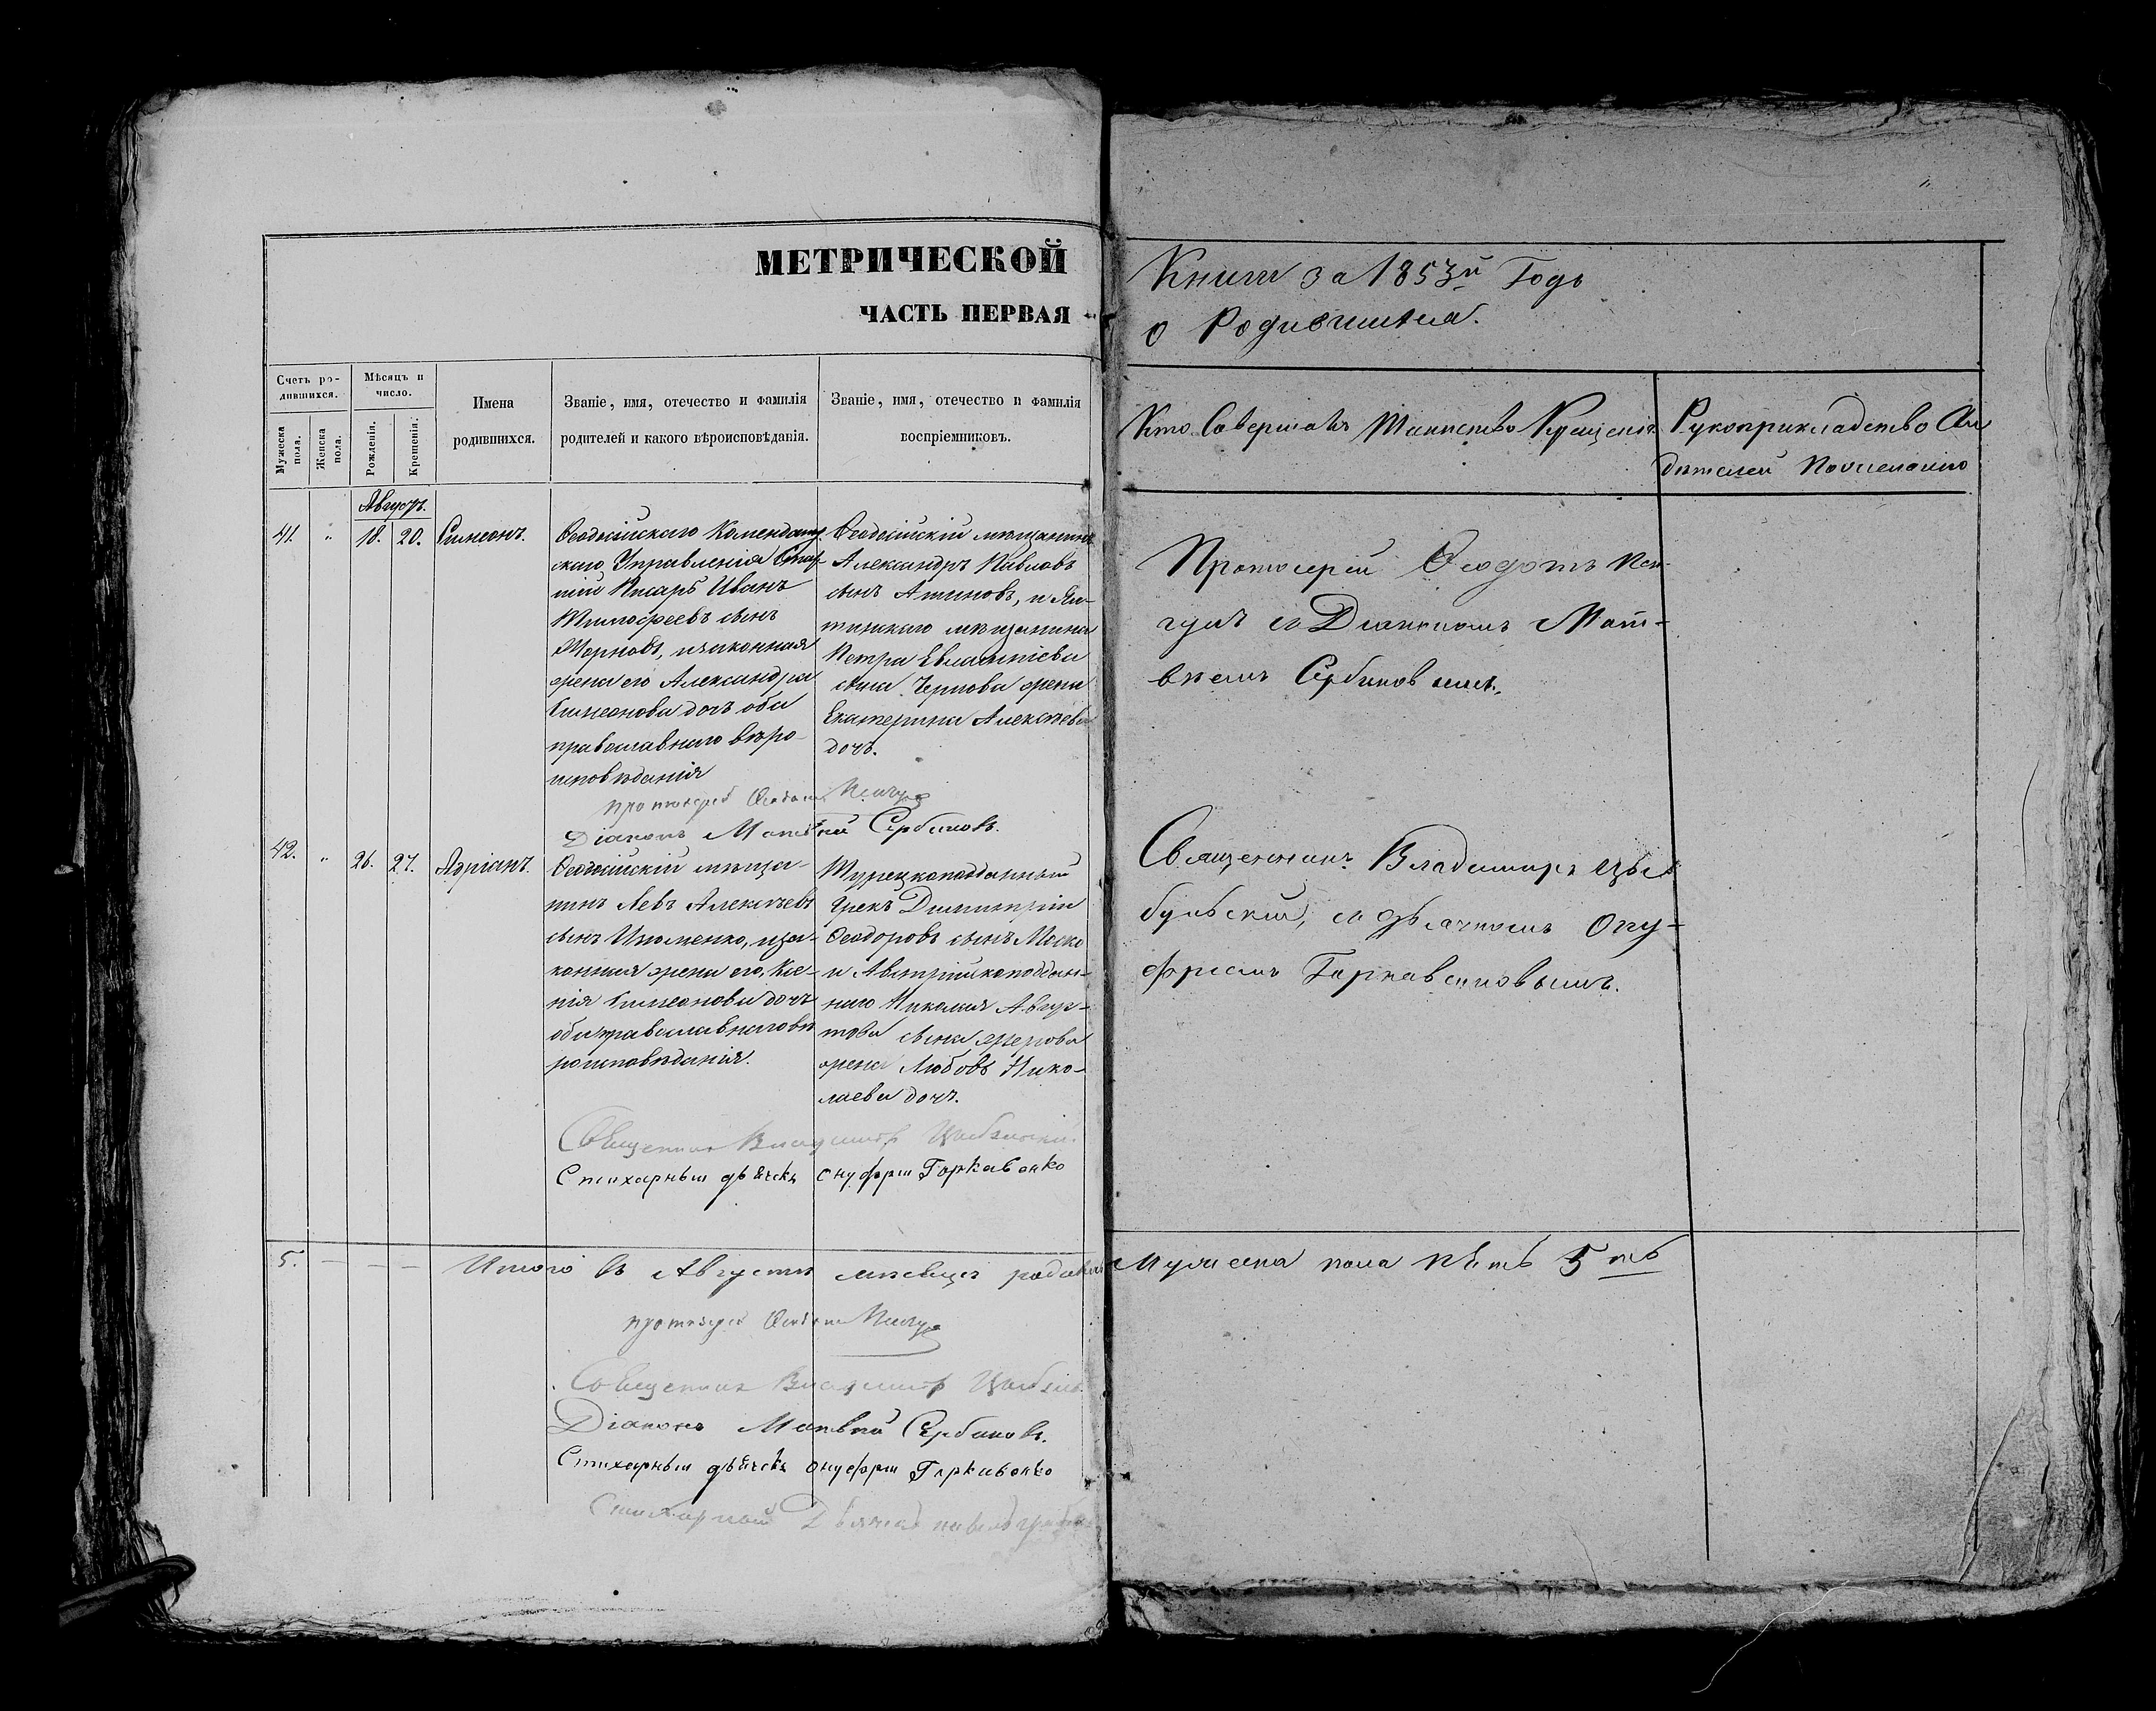 МЕТРИЧЕСКОЙ
ЧАСТЬ ПЕРВАЯ
Книги за 1853й Годъ
о Родившихся.
Счетъ ро-
дившихся.
Мѣсяцъ и
число.
Мужеска
пола.
Женска
пола.
Рожденія.
Крещенія.
Имена
родившихся.
Званіе, имя, отечество и фамилія
родителей и какого вѣроисповѣданія.
Званіе, имя, отечество и фамилія
воспріемниковъ.
Кто Совершалъ Таинство Крещенія
Рукоприкладство Сви
дѣтелей
Августъ.
41. " 18. 20. Симеонъ.
Ѳеодосійскаго Комендант
скаго Управленія Стар-
шій Писарь Иванъ
Тимофеевъ сынъ
изаконная
жена его Александра
Симеонова дочь оба
православнаго вѣро-
исповѣданія
Ѳеодосійскій мѣщанинъ
Александръ Павловъ
сынъ Атиновъ, и Ял-
тинскаго мѣщанина
Петра Евлампіева
сына Чернова жена
Екатерина Алексѣева
дочь.
Протоіерей Ѳеодотъ
съ Діакономъ Мат-
вѣемъ Сербиновымъ.
протоіерей Ѳеодотъ
Діаконъ Матвѣй Сербиновъ.
42. " 26. 27. Адріанъ.
Ѳеодосійскій мѣща-
нинъ Левъ Алексѣевъ
сынъ изза-
конная жена его, Ксе-
нія Симеонова дочь
оба православнаго вѣ
роисповѣданія.
Турецкоподданный
Грекъ Димитрій
Ѳеодоровъ сынъ
и Австрійскоподдан-
наго Николая Авгус-
това сына
жена Любовь Нико-
лаева дочь.
Священникъ Владимиръ Цы
бульскій, съ дьячкомъ Ону-
фріемъ Горкавенковымъ.
Священникъ Владимиръ Цыбульскій.
Стихарный дьячекъ Онуфрій Горкавенко
5. — — — Итого въ Августѣ мѣсяцѣ родилось Мужеска пола пять 5ть
протоіерей Ѳеодотъ
Священникъ Владимиръ
Діаконъ Матвѣй Сербиновъ.
Стихарный дьячекъ Онуфрій Горкавенко
Стихарный Дьячекъ